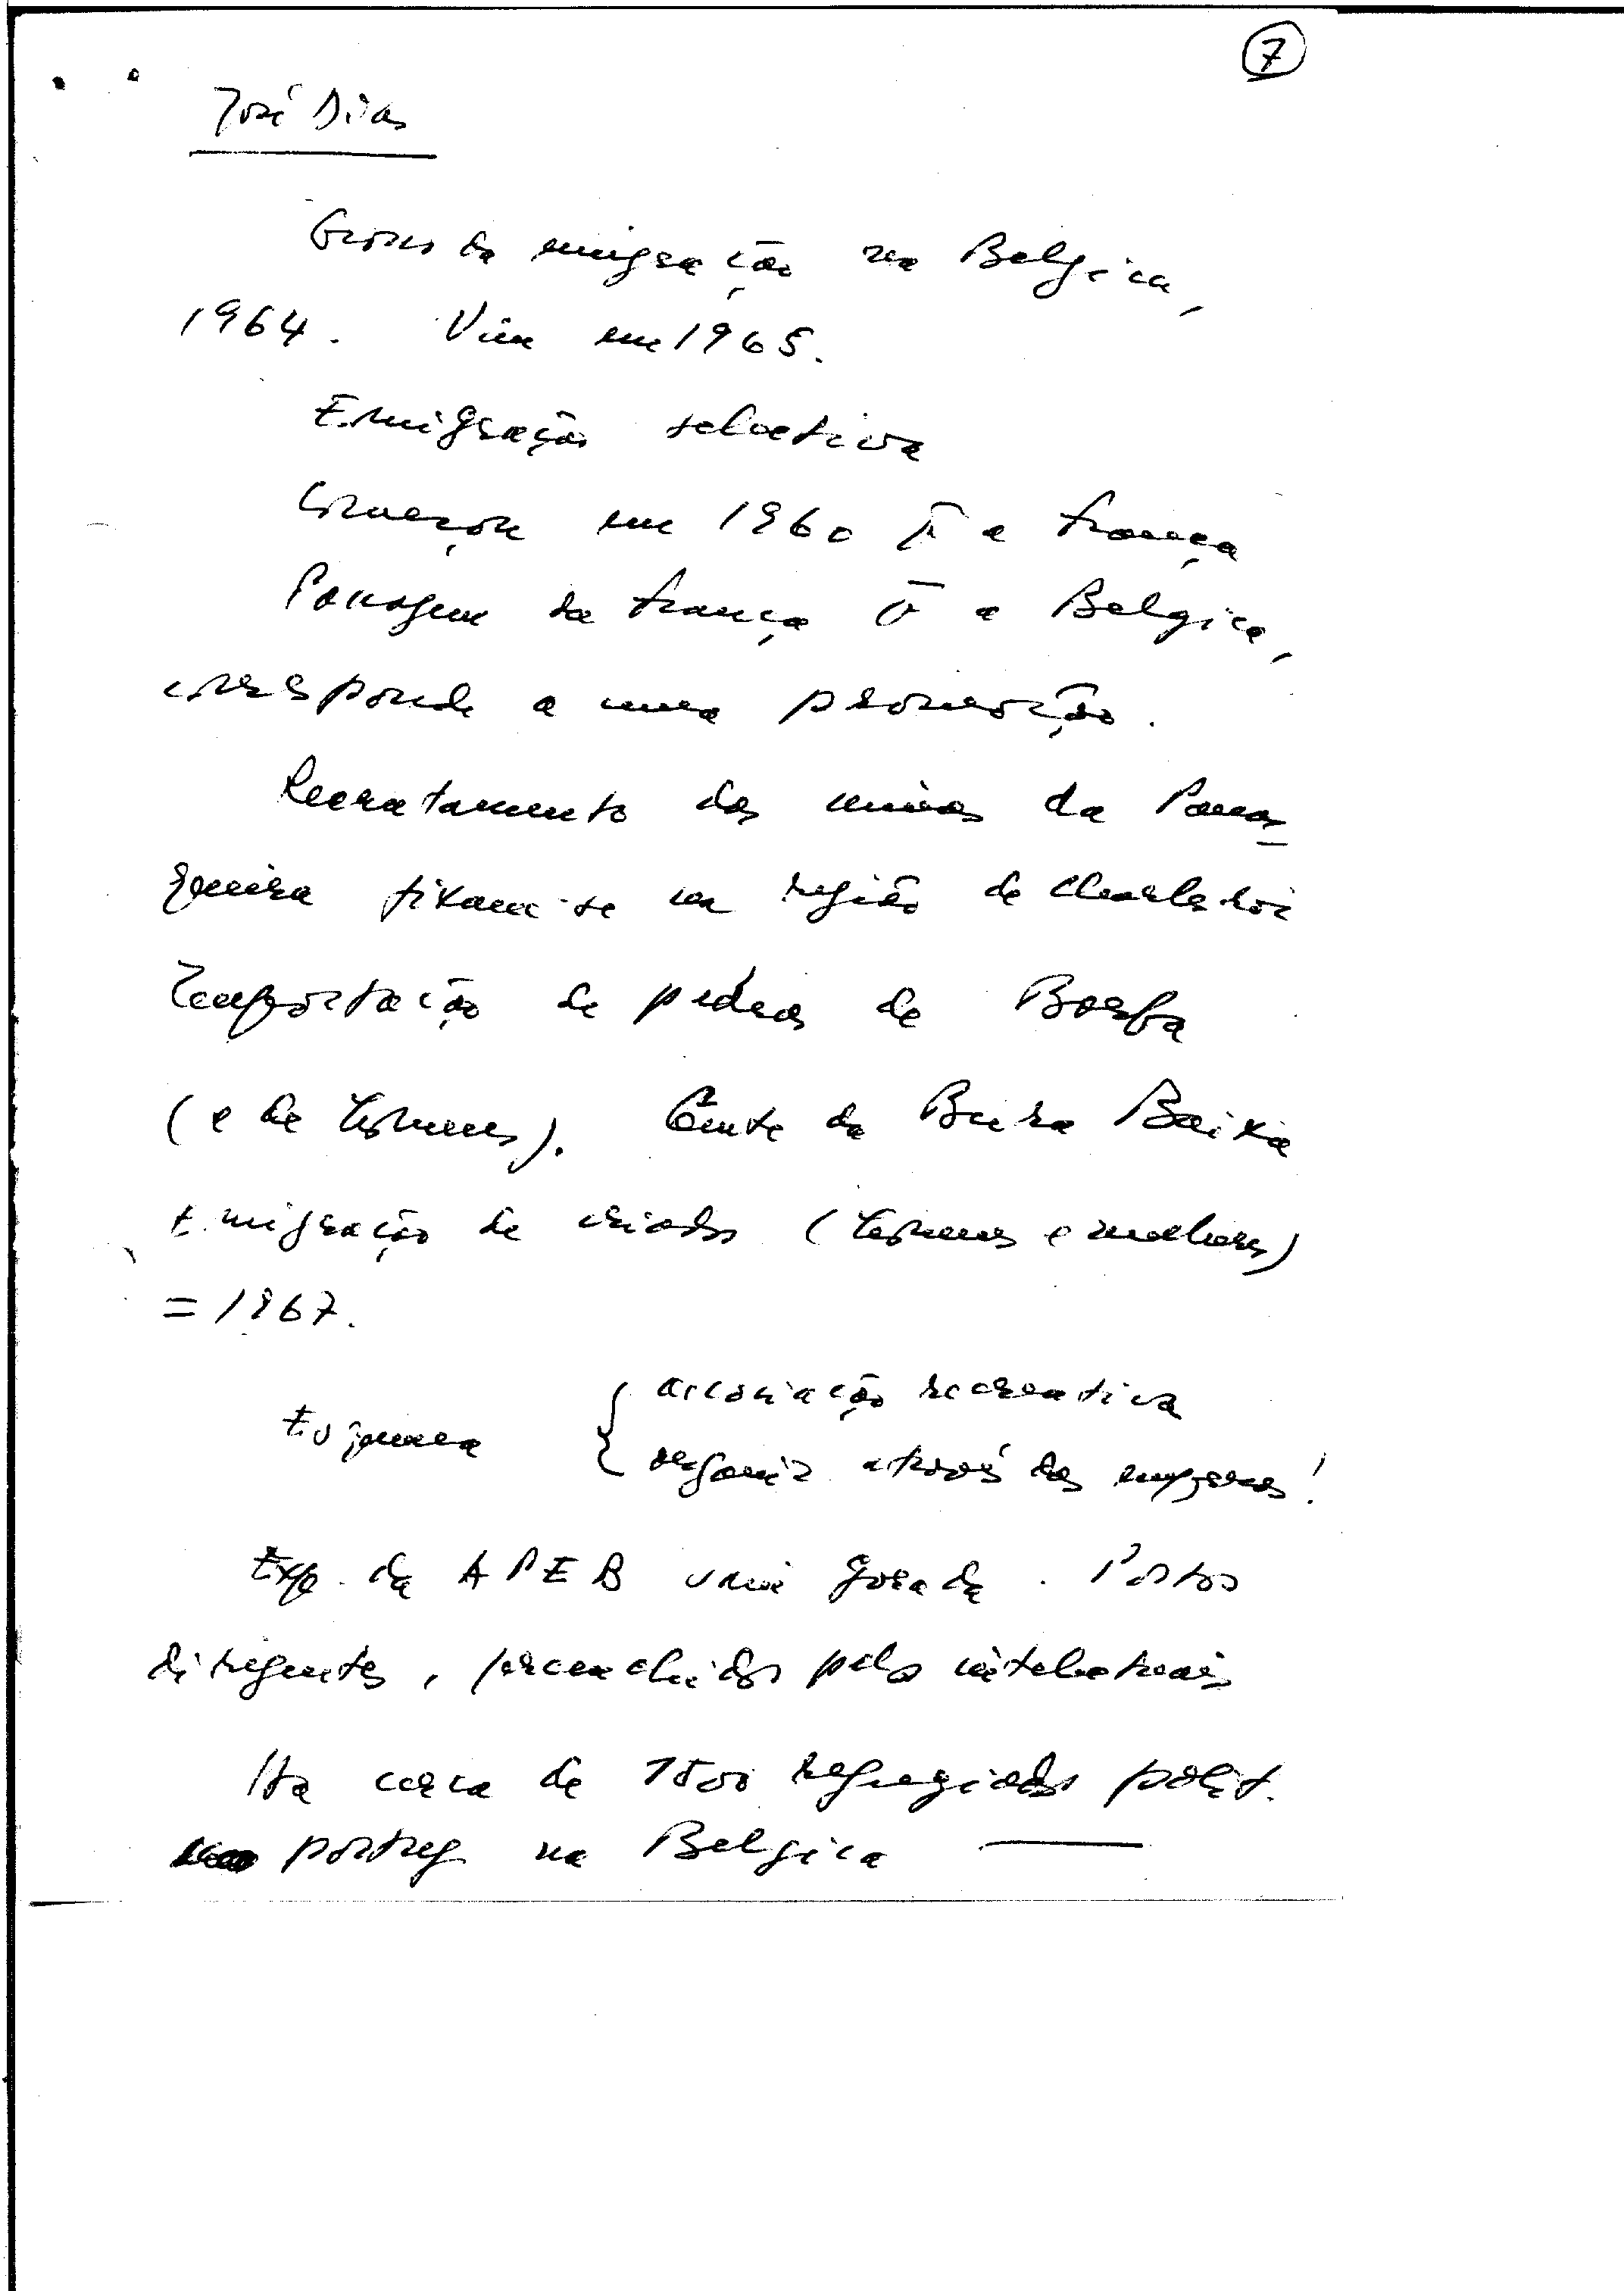 7
José Dias
da emigração na Belgica,
1964. Vim em 1965.
Emigração selectiva
Começou em 1960 pª a França
Passagem da França pª a Belgica,
corresponde a uma promoção.
Recrutamento das minas da Panas
queira fixam-se na região de Charleroi
Importação de pedras de Borba
(e de homens). Gente da Beira Baixa
Emigração de criados (homens e mulheres)
= 1967.
Esquema { associação recreativa
organiz. através das empresas!
Exp. da APEB gorada. Postos
dirigentes, preenchidos pelos intelectuais
Ha cerca de 1500 refugiados polit.
portug na Belgica